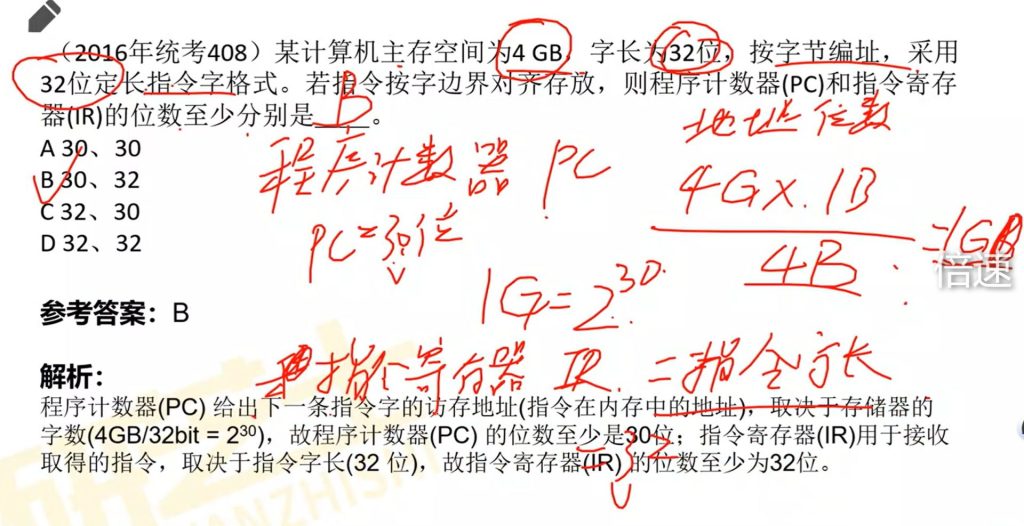 （2016年统考408）某计算机主存空间为4 GB，字长为32位，按字节编址，采用
32位定长指令字格式。若指令按字边界对齐存放，则程序计数器(PC)和指令寄存
器(IR)的位数至少分别是____。
B
地址位数
A 30、30
程序计数器 PC
B 30、32
4G×.1B
C 32、30
PC=30位
D 32、32
=1GB
4B
倍速
1G=2^30
参考答案：B
指令寄存器 IR. =指令字长
解析：
程序计数器(PC) 给出下一条指令字的访存地址(指令在内存中的地址)，取决于存储器的
字数(4GB/32bit = 2³⁰)，故程序计数器(PC) 的位数至少是30位；指令寄存器(IR)用于接收
取得的指令，取决于指令字长(32 位)，故指令寄存器(IR) 的位数至少为32位。
=32